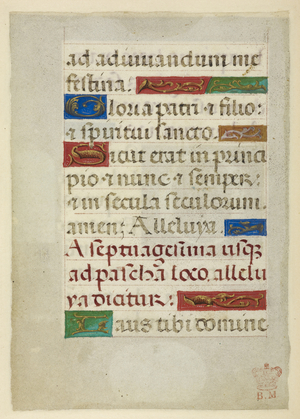 ad adiuuandum me
festina.
Gloria patri & filio:
& spiritui sancto.
Sicut erat in princi
pio & nunc & semper:
& in secula seculorum.
amen: Alleluya.
A septuagesima usq;
ad pascha loco, allelu
ya dicitur:
Laus tibi domine
B.M